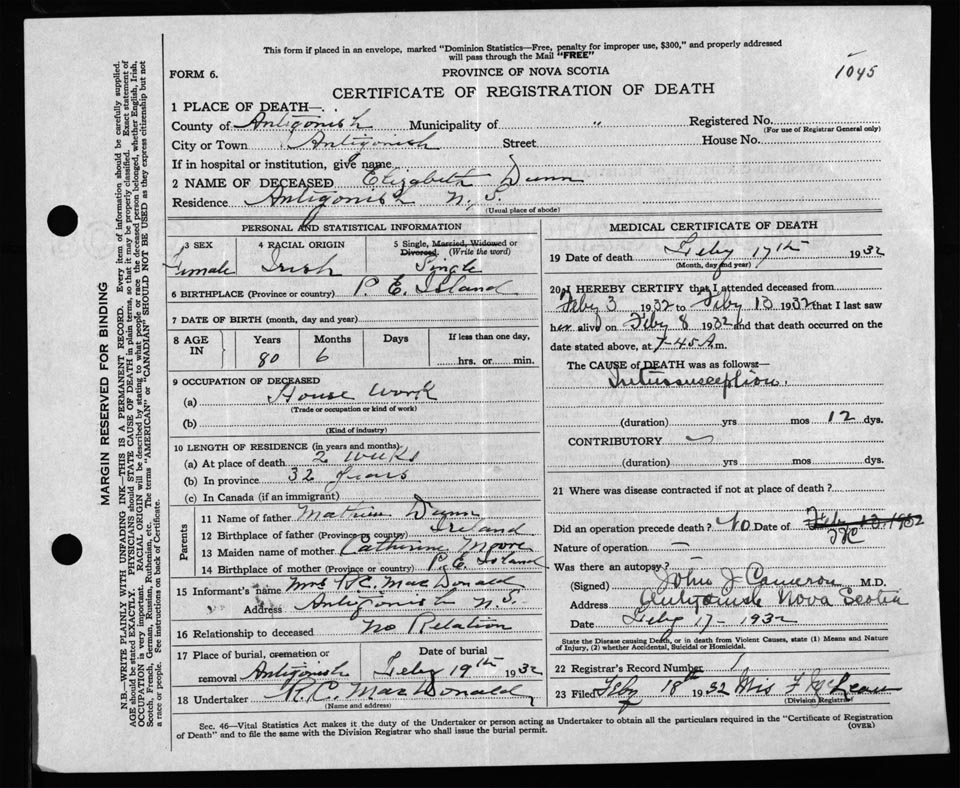 This form if placed in an envelope, marked "Dominion Statistics—Free, penalty for improper use, $300," and properly addressed
will pass through the Mail "FREE"
1045
FORM 6.
PROVINCE OF NOVA SCOTIA
CERTIFICATE OF REGISTRATION OF DEATH
1 PLACE OF DEATH—
County of Antigonish Municipality of " Registered No.
(For use of Registrar General only)
City or Town Antigonish Street House No.
If in hospital or institution, give name
2 NAME OF DECEASED Elizabeth Dunn
Residence Antigonish N.S.
(Usual place of abode)
PERSONAL AND STATISTICAL INFORMATION
3 SEX 4 RACIAL ORIGIN 5 Single, Married, Widowed or Divorced. (Write the word)
Female Irish Single
6 BIRTHPLACE (Province or country) P. E. Island
7 DATE OF BIRTH (month, day and year)
8 AGE IN Years Months Days If less than one day,
80 6 hrs. or min.
9 OCCUPATION OF DECEASED
(a) House Work
(Trade or occupation or kind of work)
(b)
(Kind of industry)
10 LENGTH OF RESIDENCE (in years and months)
(a) At place of death 2 weeks
(b) In province 32 years
(c) In Canada (if an immigrant)
Parents
11 Name of father Mathew Dunn
12 Birthplace of father (Province or country) Ireland
13 Maiden name of mother Catherine Moore
14 Birthplace of mother (Province or country) P. E. Island
15 Informant's name Mrs R.C. MacDonald
Address Antigonish N.S.
16 Relationship to deceased No Relation
17 Place of burial, cremation or removal Antigonish
Date of burial Feby 19th 1932
18 Undertaker R.C. MacDonald
(Name and address)
MEDICAL CERTIFICATE OF DEATH
19 Date of death Feby 17th 1932
(Month, day and year)
20 I HEREBY CERTIFY that I attended deceased from
Feby 3 1932 to Feby 13 1932 that I last saw
her alive on Feby 8 1932 and that death occurred on the
date stated above, at 7.45 A m.
The CAUSE of DEATH was as follows—
Intussusception.
(duration) yrs mos 12 dys.
CONTRIBUTORY
(duration) yrs mos dys.
21 Where was disease contracted if not at place of death?
Did an operation precede death? No Date of Feby 13 1932
Nature of operation —
Was there an autopsy?
(Signed) John J Cameron M.D.
Address Antigonish Nova Scotia
Date Feby 17 - 1932
State the Disease causing Death, or in death from Violent Causes, state (1) Means and Nature
of Injury, (2) whether Accidental, Suicidal or Homicidal.
22 Registrar's Record Number 1
23 Filed Feby 18th 1932 Mrs F McLean
(Division Registrar)
Sec. 46—Vital Statistics Act makes it the duty of the Undertaker or person acting as Undertaker to obtain all the particulars required in the "Certificate of Registration
of Death" and to file the same with the Division Registrar who shall issue the burial permit.
(OVER)
MARGIN RESERVED FOR BINDING
N.B.—WRITE PLAINLY WITH UNFADING INK—THIS IS A PERMANENT RECORD. Every item of information should be carefully supplied.
AGE should be stated EXACTLY. PHYSICIANS should STATE CAUSE OF DEATH in plain terms, so that it may be properly classified. Exact statement of
OCCUPATION is very important. RACIAL ORIGIN will be described by stating to what people or race the deceased person belonged, whether English, Irish,
Scotch, French, German, Russian, Ruthenian, etc. The terms "AMERICAN" or "CANADIAN" SHOULD NOT BE USED as they express citizenship but not
a race or people. See instructions on back of Certificate.